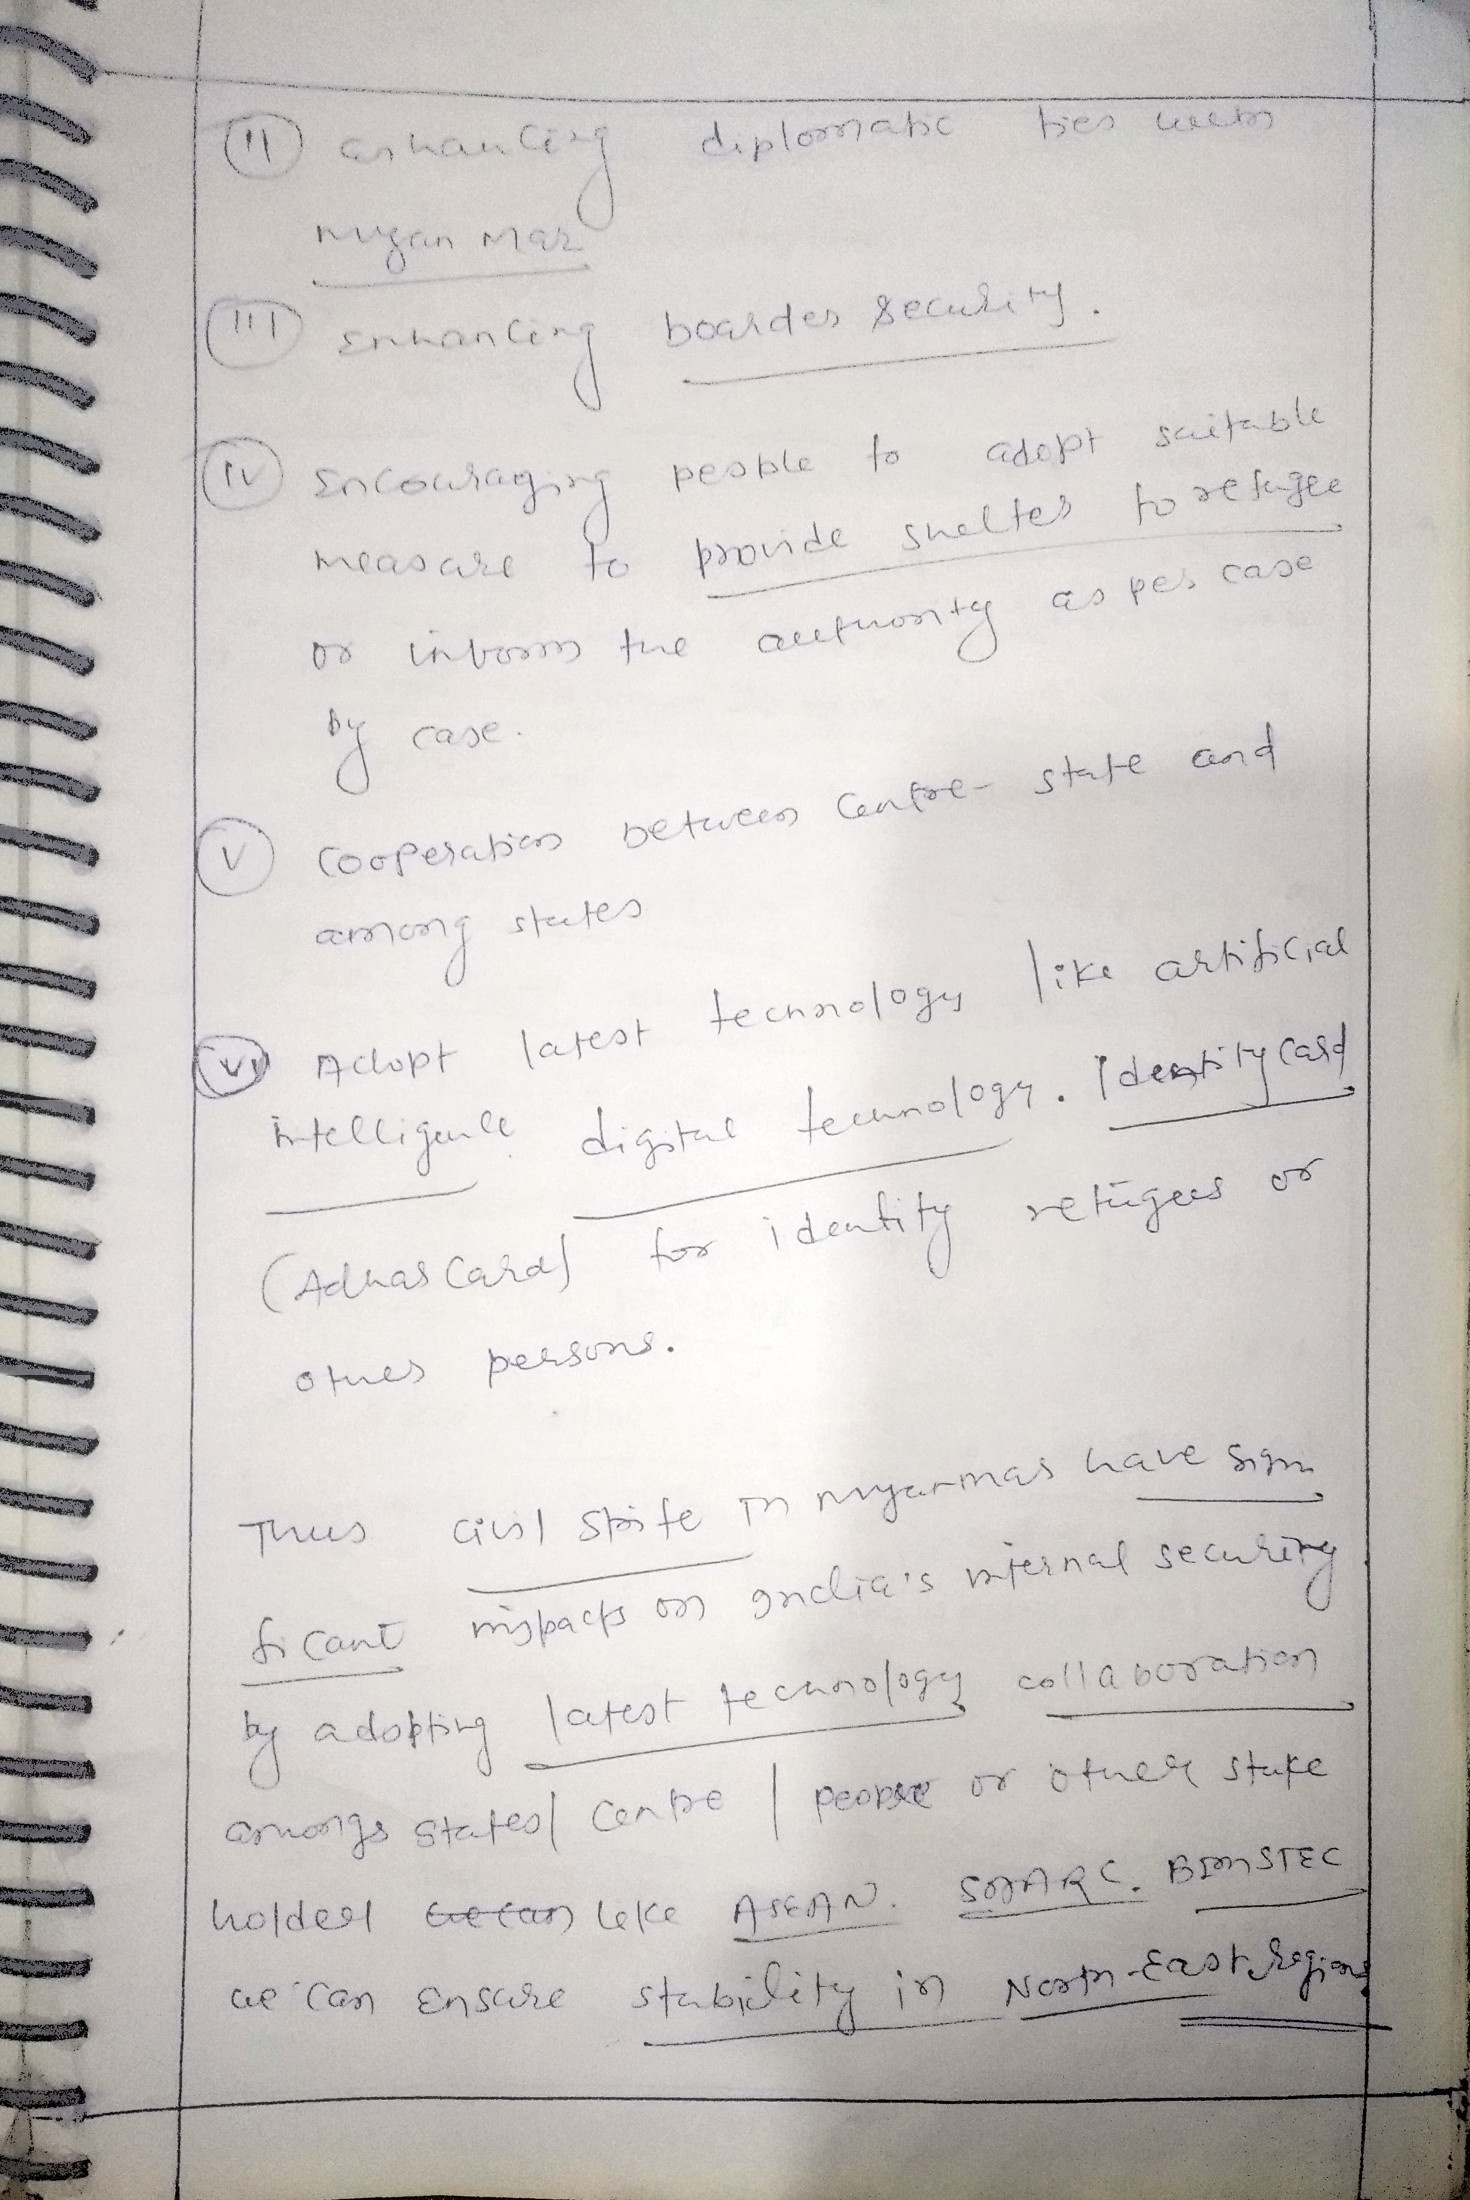 (II) enhancing diplomatic ties with
Myanmar
(III) Enhancing boarder security.
(IV) Encouraging people to adopt suitable
measure to provide shelter to refugee
or inform the authority as per case
by case.
(V) Cooperation between Centre-state and
among states
(VI) Adopt latest technology like artificial
intelligence digital technology. Identity card
(Adhar Card) for identity refugees or
other persons.
Thus civil strife in Myanmar have signi
ficant impacts on India's internal security
by adopting latest technology collaboration
amongs States/ Centre / people or other stake
holder we can like ASEAN. SAARC. BIMSTEC
we can ensure stability in North-East regions